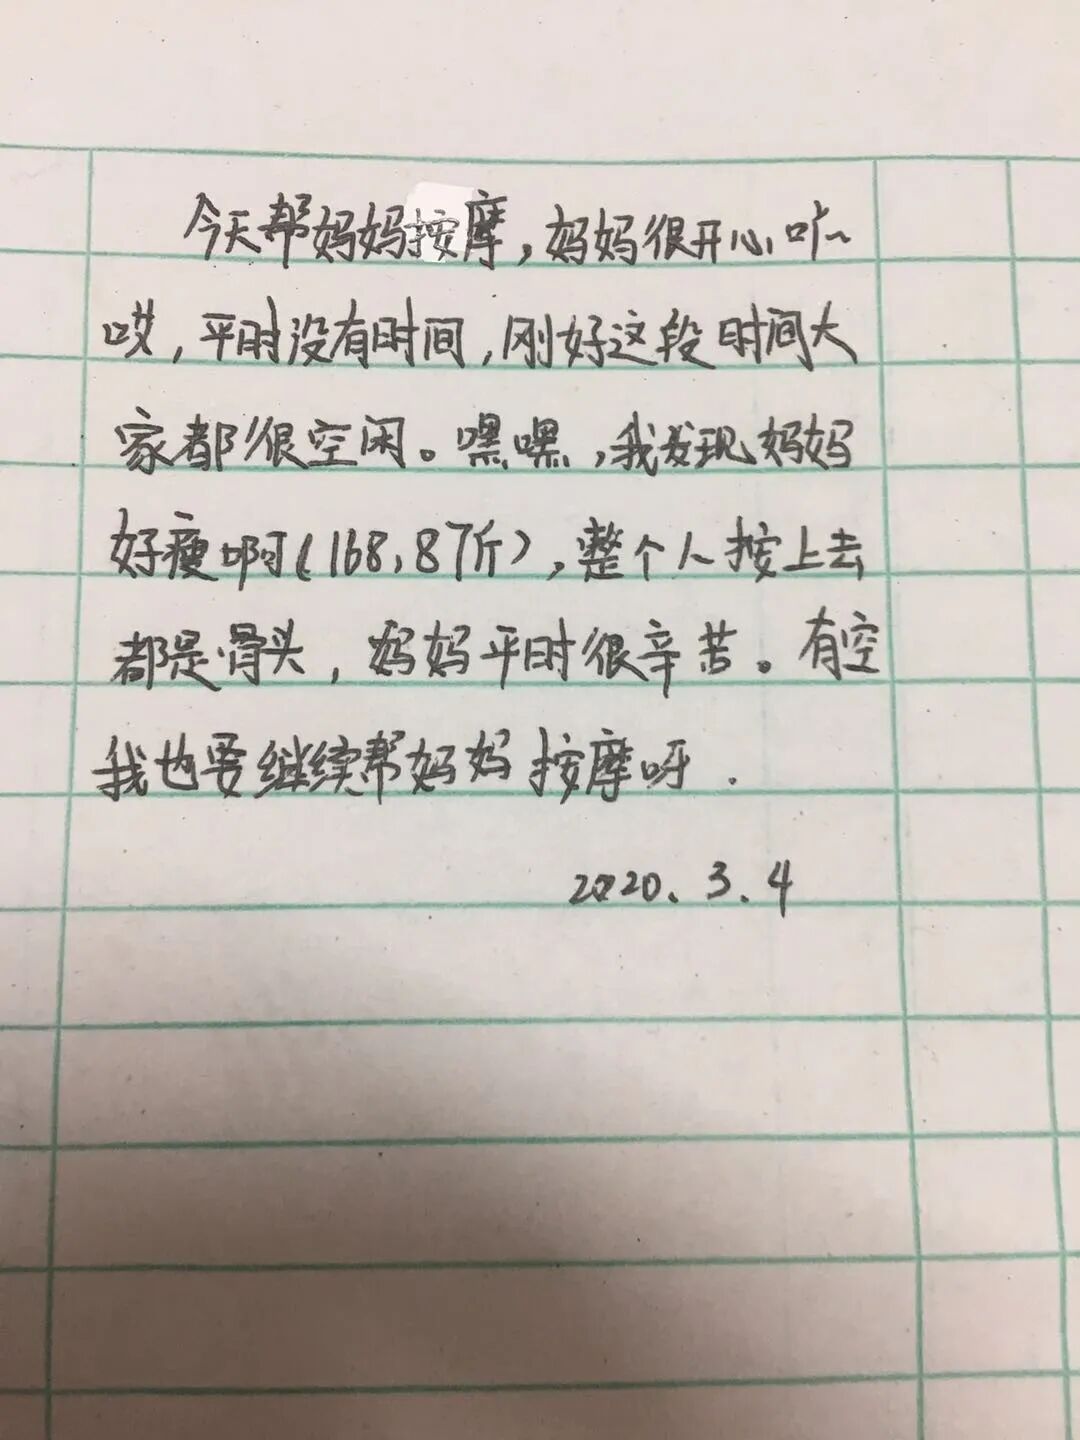 今天帮妈妈按摩,妈妈很开心吖~
哎,平时没有时间,刚好这段时间大
家都很空闲。嘿嘿,我发现妈妈
好瘦啊(168,87斤),整个人按上去
都是骨头,妈妈平时很辛苦。有空
我也要继续帮妈妈按摩呀.
2020.3.4